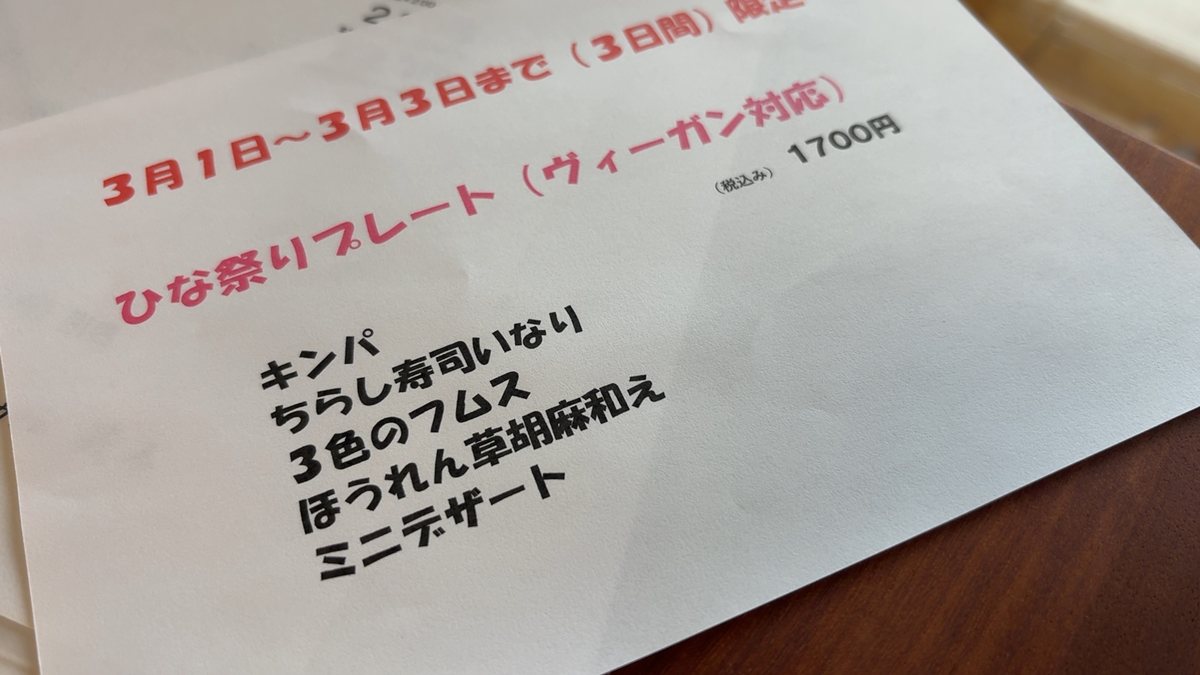 3月1日～3月3日まで（3日間）限定
ひな祭りプレート（ヴィーガン対応）
（税込み） 1700円
キンパ
ちらし寿司いなり
3色のフムス
ほうれん草胡麻和え
ミニデザート